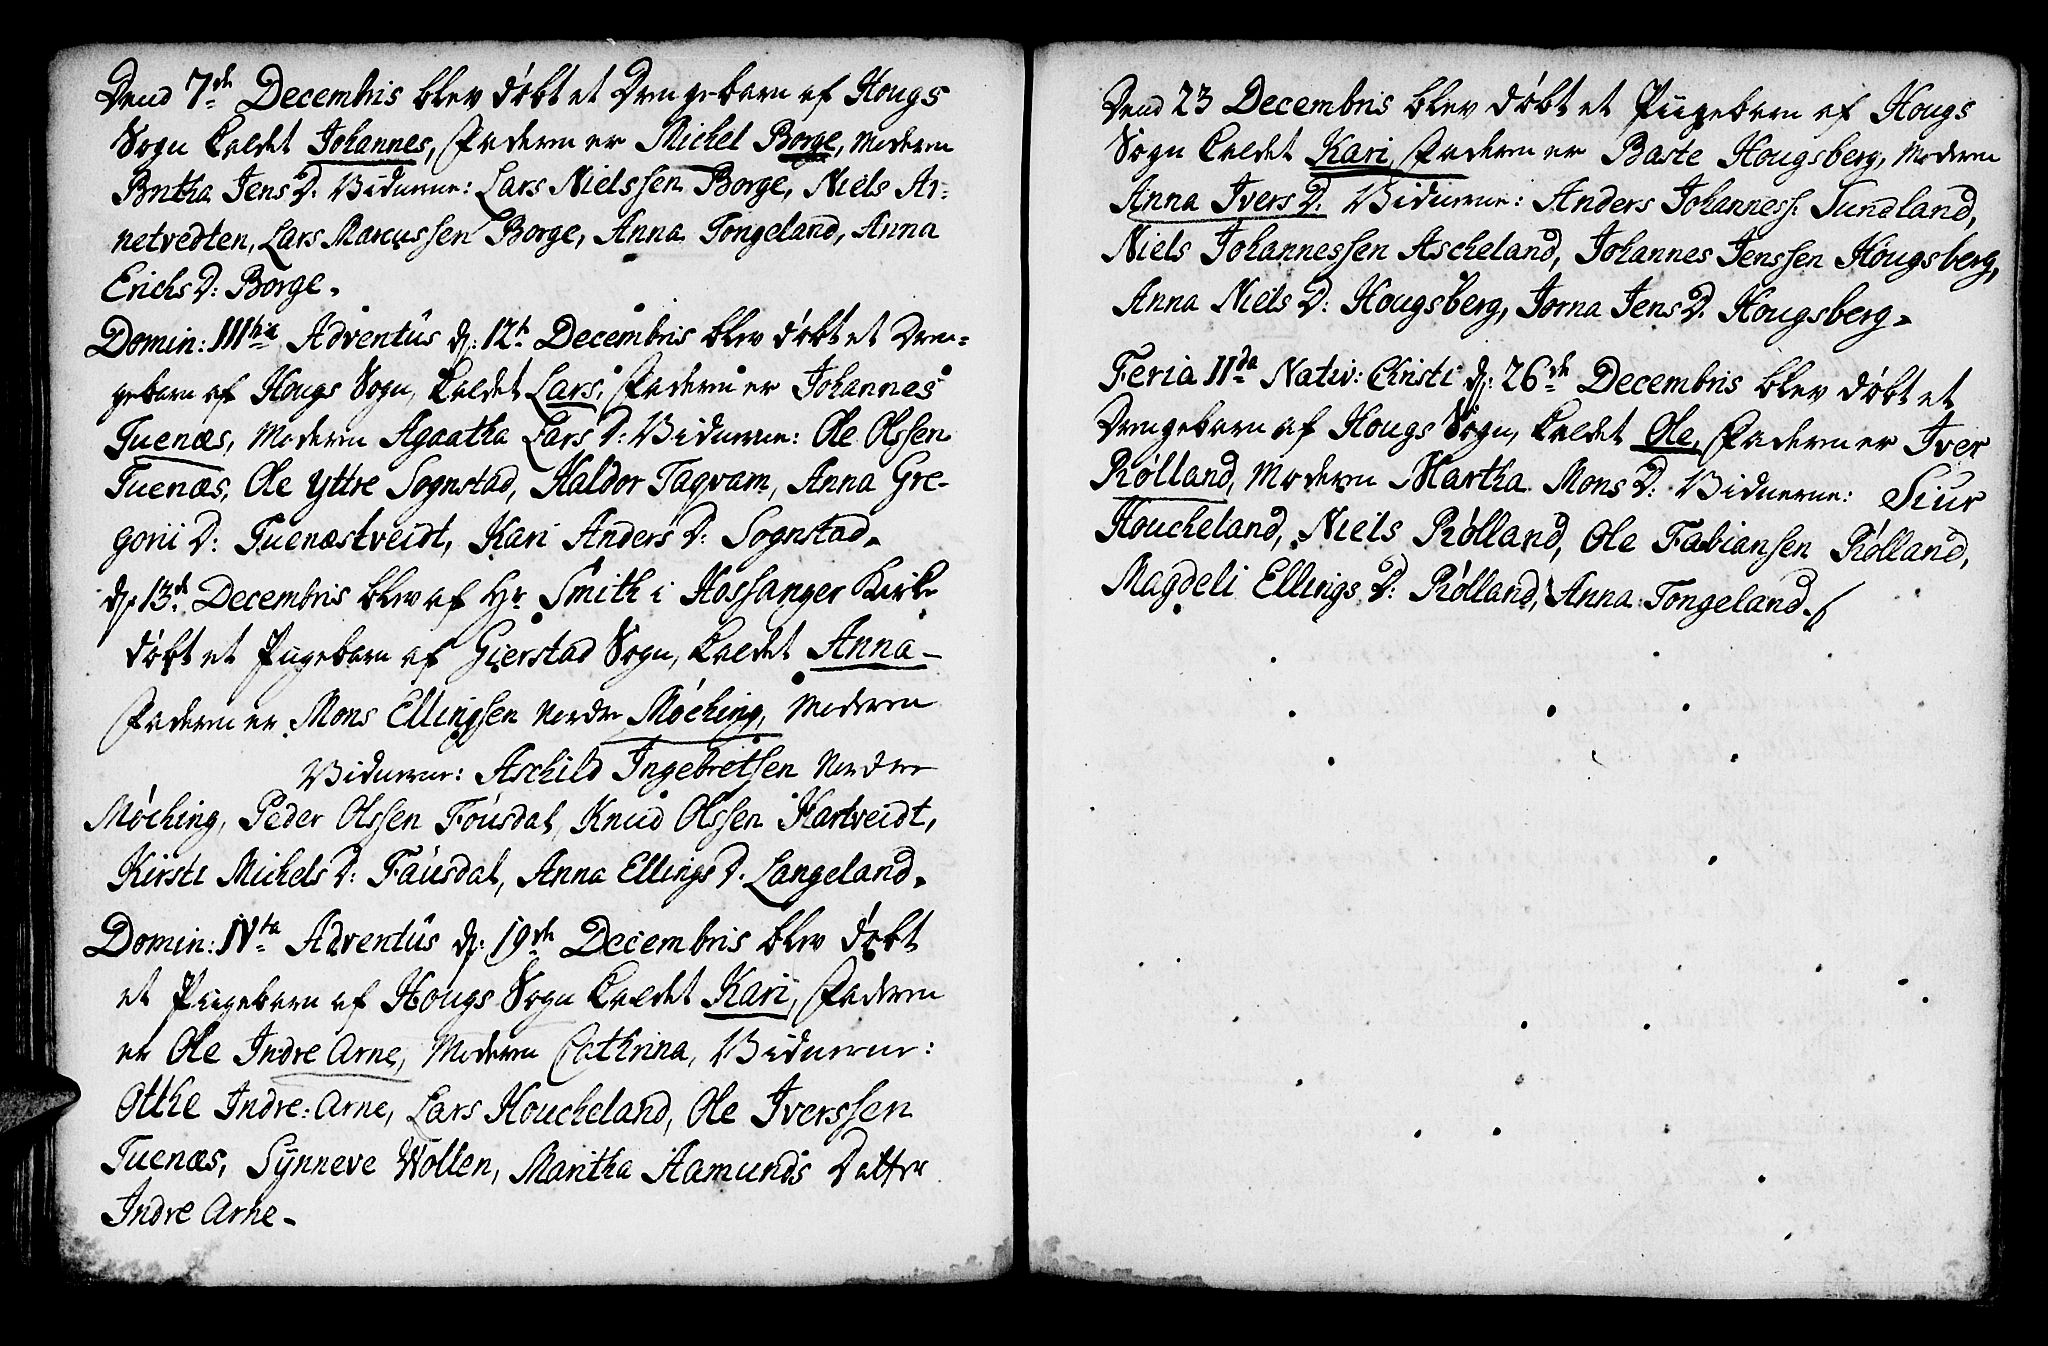 Dend 7de Decembris blev døbt et Drengebarn af Hougs
Sogn kaldet Johannes, Faderen er Michel Borge, Moderen
Britha Jens D. Vidnerne: Lars Nielssen Borge, Niels Ar-
netvedten, Lars Marcussen Borge, Anna Tongeland, Anna
Erichs D: Borge.
Domin: IIItia Adventûs d: 12te Decembris blev døbt et Dren-
gebarn af Hougs Sogn, kaldet Lars, Faderen er Johannes
Tuenæs, Moderen Agaatha Lars D: Vidnerne: Ole Olssen
Tuenæs, Ole Yttre Sognstad, Haldor Tagvam, Anna Gre-
gorii D: Tuenæstveidt, Kari Anders D: Sognstad.
d: 13de Decembris blev af Hr Smith i Hossanger Kirke
døbt et Pigebarn af Gierstad Sogn, kaldet Anna-
Faderen er Mons Ellingsen Nordre Møching, Moderen
Vidnerne: Aschild Ingebretsen Nordre
Møching, Peder Olssen Fousdal, Knud Olssen Hartveidt,
Kirsti Michels D: Fausdal, Anna Ellings D. Langeland.
Domin: IVta Adventûs d: 19de Decembris blev døbt
et Pigebarn af Hougs Sogn kaldet Kari, Faderen
er Ole Indre Arne, Moderen Cathrina, Vidnerne:
Otthe Indre: Arne, Lars Houcheland, Ole Iverssen
Tuenæs, Synneve Wollen, Maritha Aamunds Datter
Indre Arne-
Dend 23 Decembris blev døbt et Piigebarn af Hougs
Sogn kaldet Kari, Faderen er Baste Hougsberg, Moderen
Anna Ivers D. Vidnerne: Anders Johanness: Tundland,
Niels Johannessen Ascheland, Johannes Jenssen Hougsberg,
Anna Niels D: Hougsberg, Jorna Jens D. Hougsberg.
Feria IIda Nativ: Christi d: 26de Decembris blev døbt et
Drengebarn af Hougs Sogn, kaldet Ole, Faderen er Iver
Rølland, Moderen Martha Mons D: Vidnerne: Siur
Houcheland, Niels Rølland, Ole Fabiansen Rølland,
Magdeli Ellings D: Rølland, Anna Tongeland.